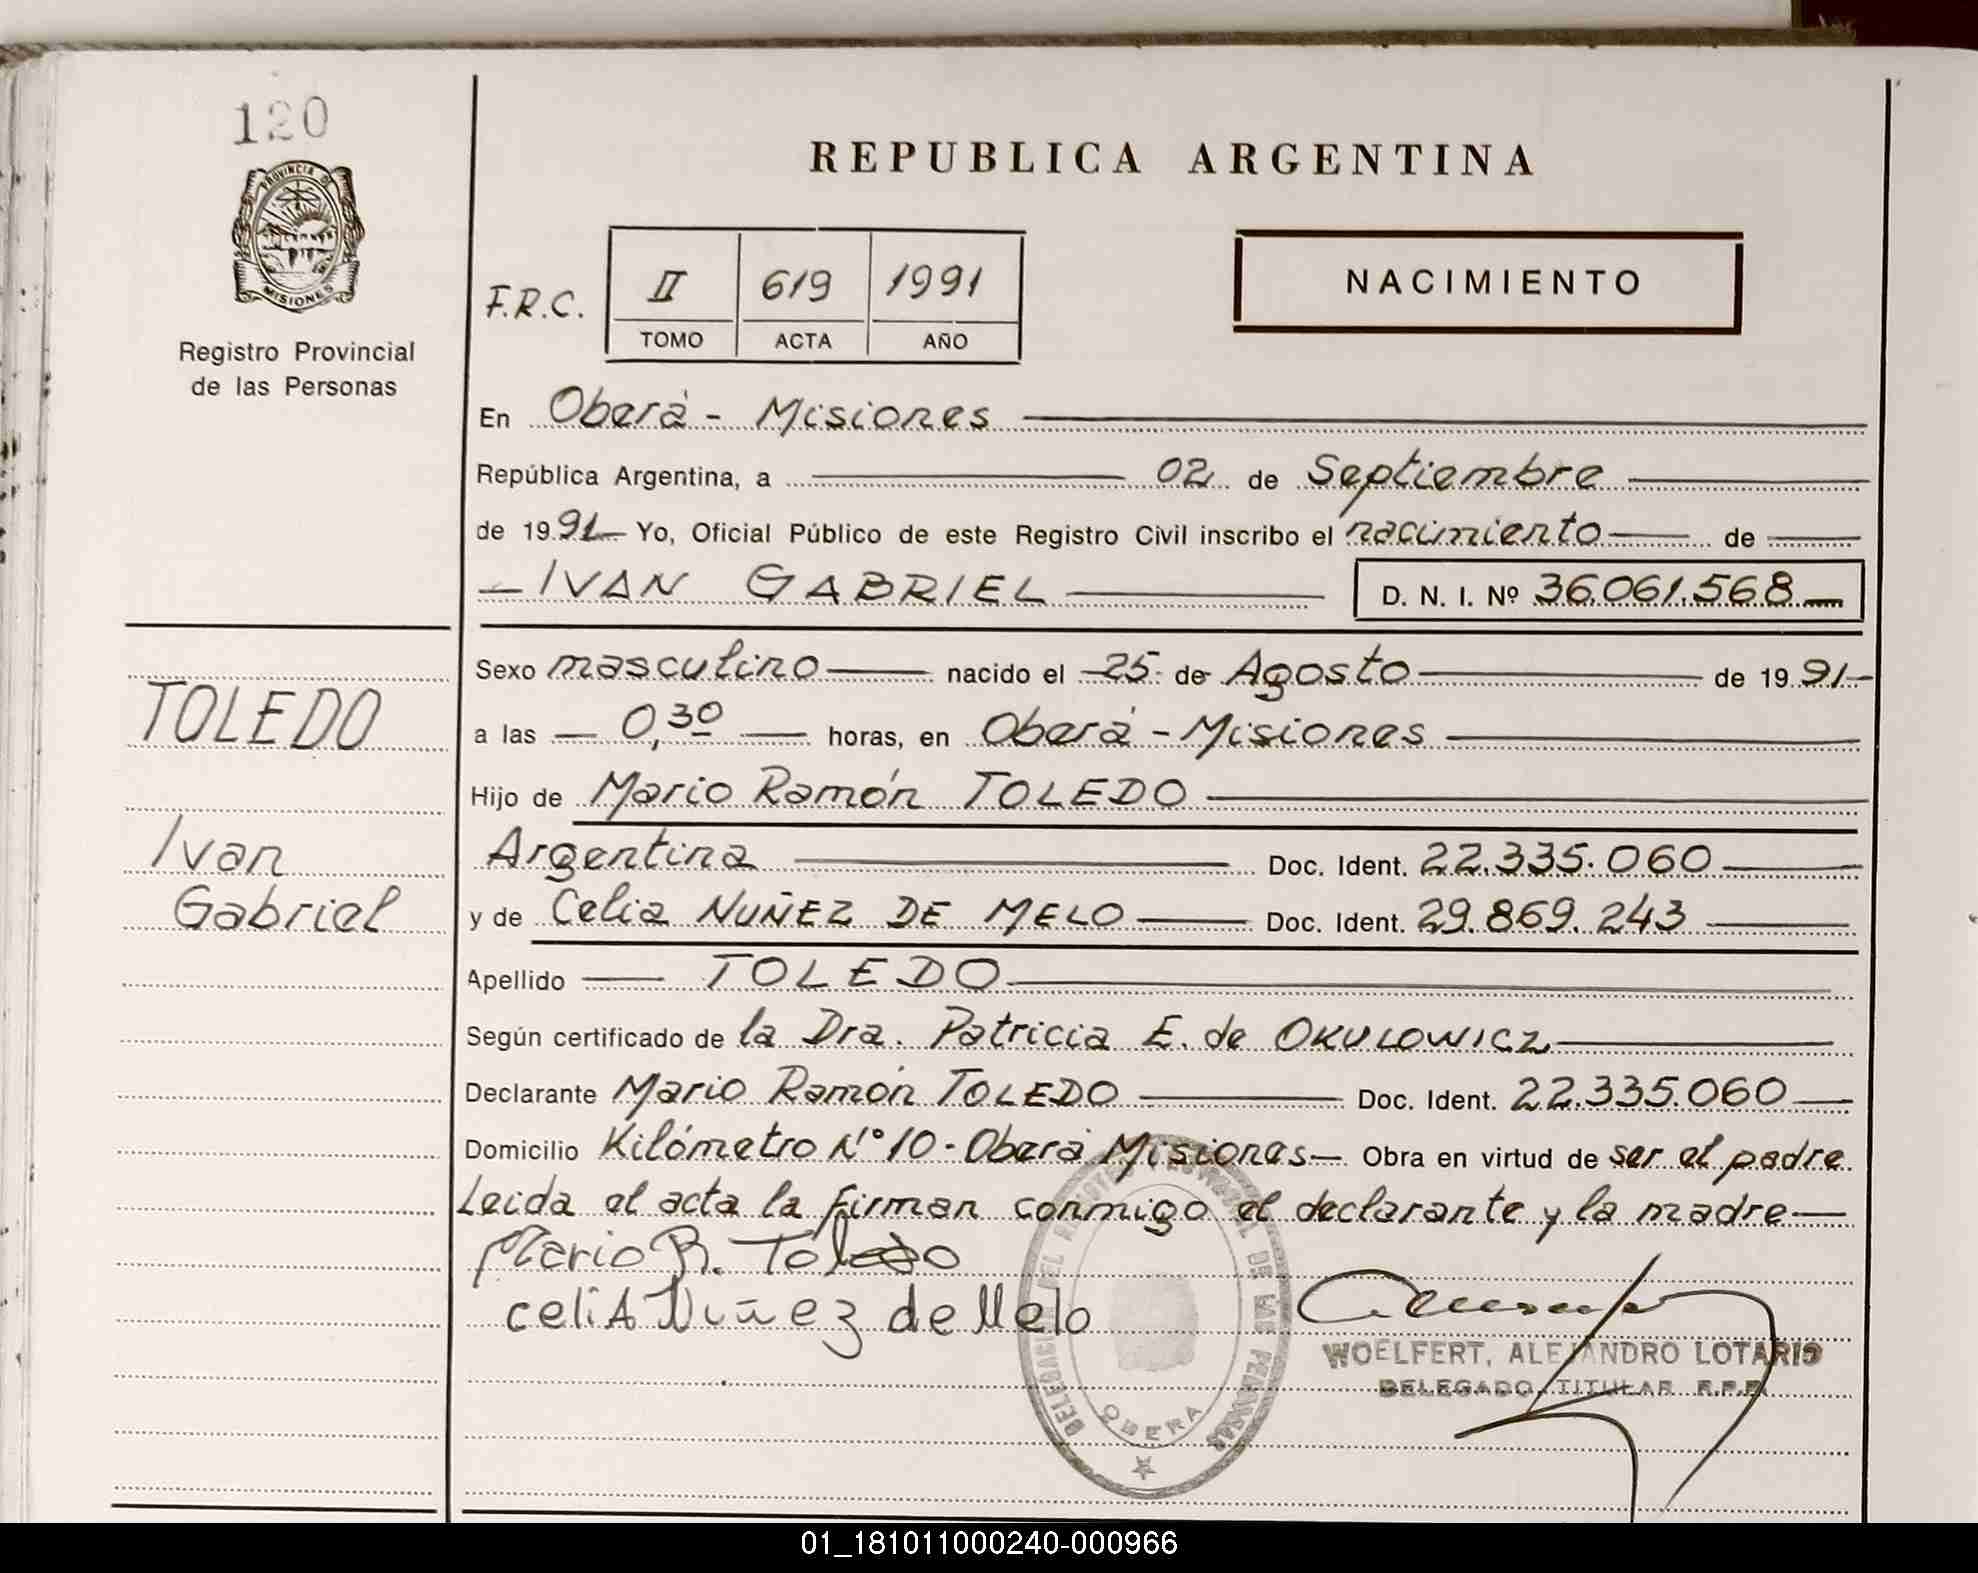 120
PROVINCIA DE
MISIONES
Registro Provincial
de las Personas
REPUBLICA ARGENTINA
F.R.C.
II 619 1991
TOMO ACTA AÑO
NACIMIENTO
En Oberá - Misiones
República Argentina, a 02 de Septiembre
de 1991 Yo, Oficial Público de este Registro Civil inscribo el nacimiento de
IVAN GABRIEL D. N. I. Nº 36.061.568
Sexo masculino nacido el 25 de Agosto de 1991
TOLEDO
a las 0,30 horas, en Oberá - Misiones
Hijo de Mario Ramón TOLEDO
Ivan
Gabriel
Argentina Doc. Ident. 22.335.060
y de Celia NUÑEZ DE MELO Doc. Ident. 29.869.243
Apellido TOLEDO
Según certificado de la Dra. Patricia E. de OKULOWICZ
Declarante Mario Ramón TOLEDO Doc. Ident. 22.335.060
Domicilio Kilómetro Nº 10 - Oberá Misiones Obra en virtud de ser el padre
Leida el acta la firman conmigo el declarante y la madre
Mario R. Toledo
celiA Nuñez de Melo
DELEGACION DEL REGISTRO PROVINCIAL DE LAS PERSONAS
OBERA
WOELFERT, ALEJANDRO LOTARIO
DELEGADO TITULAR R.P.P.
01_181011000240-000966